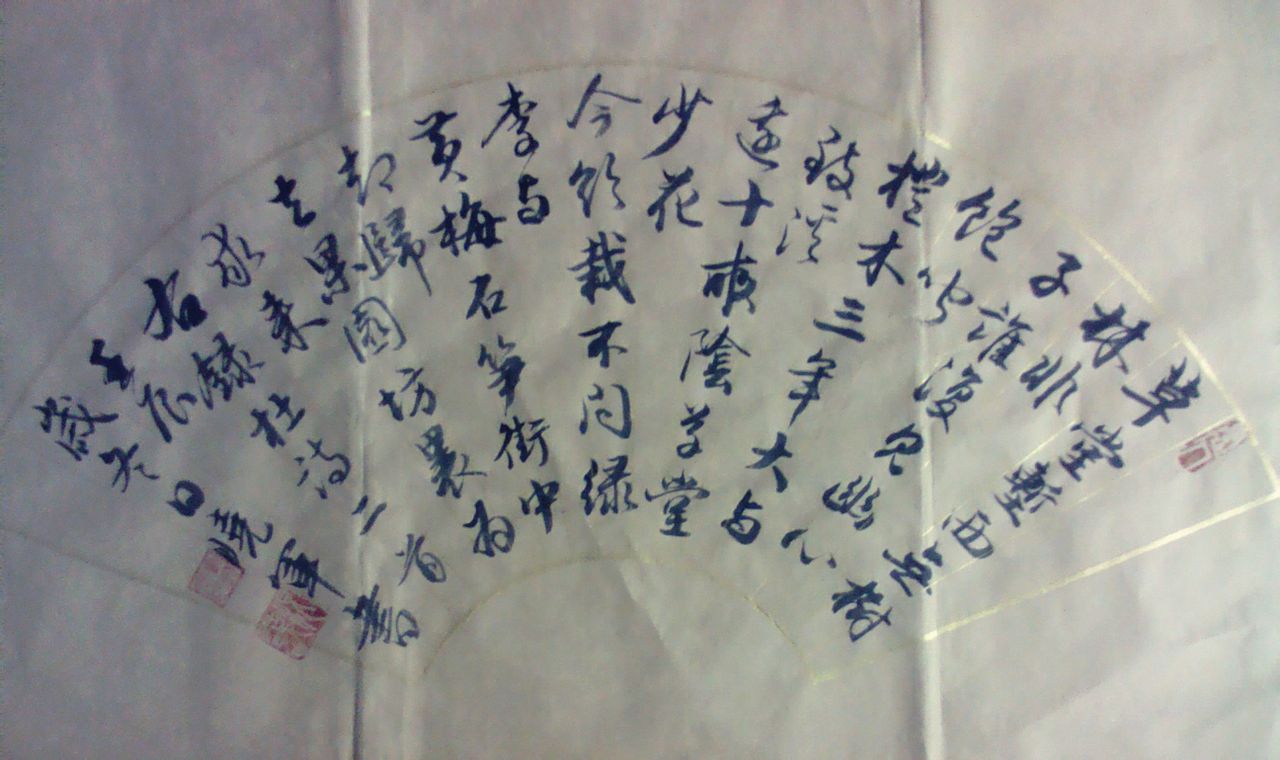 草堂塹西無樹
林非
子誰復見幽心
飽聞
榿木三年大與
致溪
邊十畝陰草堂
少花
今欲栽不問綠
李與
黃梅石筍街中
却歸
去果園坊裏為
求来
右錄杜詩二首
壬辰
歲冬日曉軍書